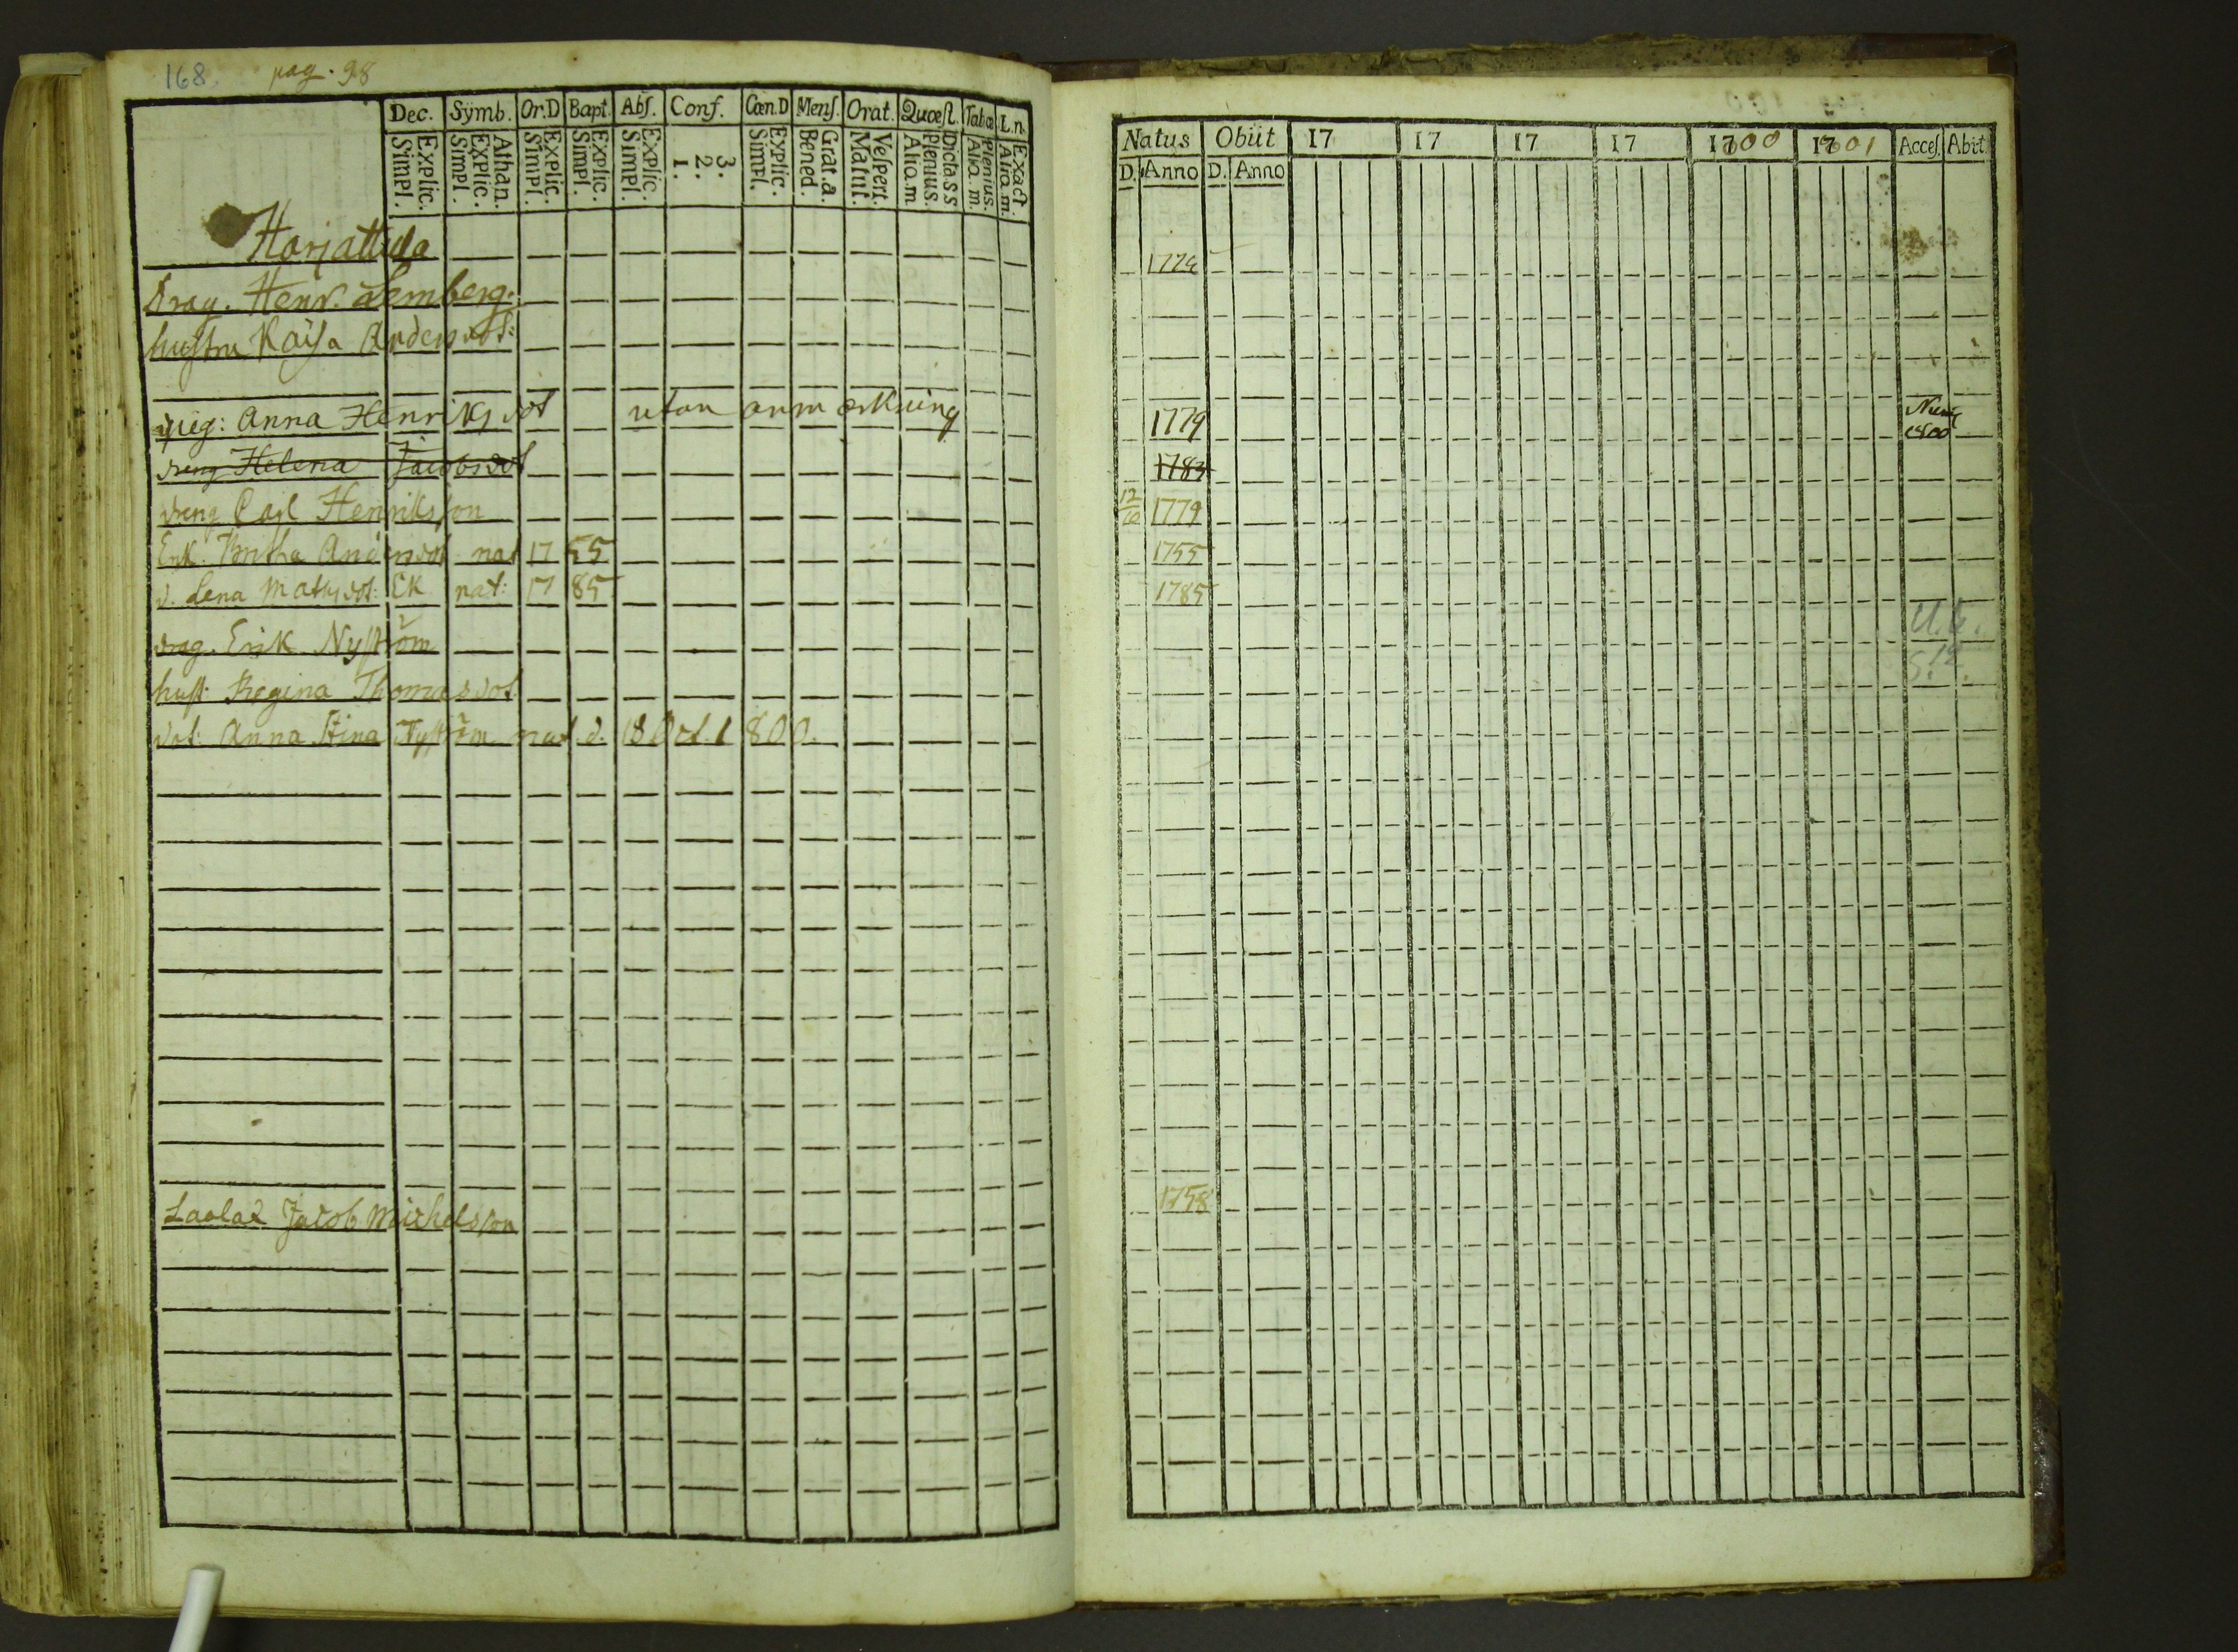 168. pag. 98
Dec. Symb. Or.D Bapt. Abſ. Conf. Cœn.D Menſ. Orat. Quæſt. Tabæ L.n.
Explic. Simpl. Athan. Explic. Simpl. Explic. Simpl. Explic. Simpl. Explic. Simpl. 3. 2. 1. Explic. Simpl. Grat.a. Bened. Veſpert. Matut. Dicta s s Plenius. Alio.m Plenius. Alia.m. Exact. Alia.m.
Harjattula
Drag. Henr. Lemberg.
huſtru Kaiſa Andersdot:
pig: Anna Henriksdot utan anmærkning
dreng Helena Jacobsdot
dreng Carl Henriksſon
Enk. Britha Andersdot nat 1755
d. Lena Matsdot: Ek nat: 1785
drag. Erik Nyſtröm
huſt. Regina Thomasdot
dot: Anna Stina Nyſtröm nat. d. 18 Oct. 1800.
Jacob Michelsſon
Natus Obiit 17 17 17 17 1800 1801 Acceſ. Abiit
D. Anno D. Anno
1774
1779 1800
1783
12 1779
1755
1785
1758